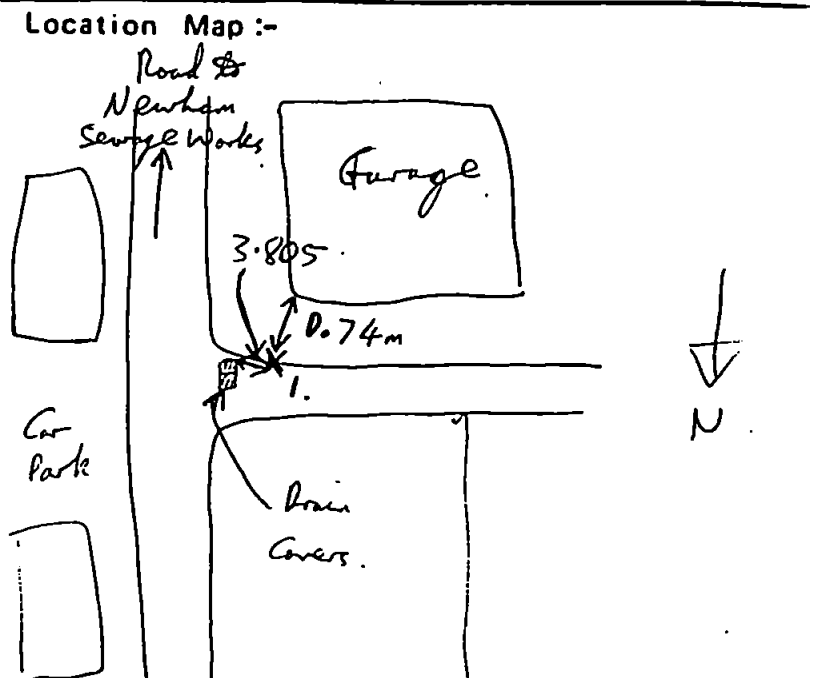 Location Map :-
Road to
Newham
Sewage Works
Garage
3.805
0.74m
1.
N
Car
Park
Drain
Covers.